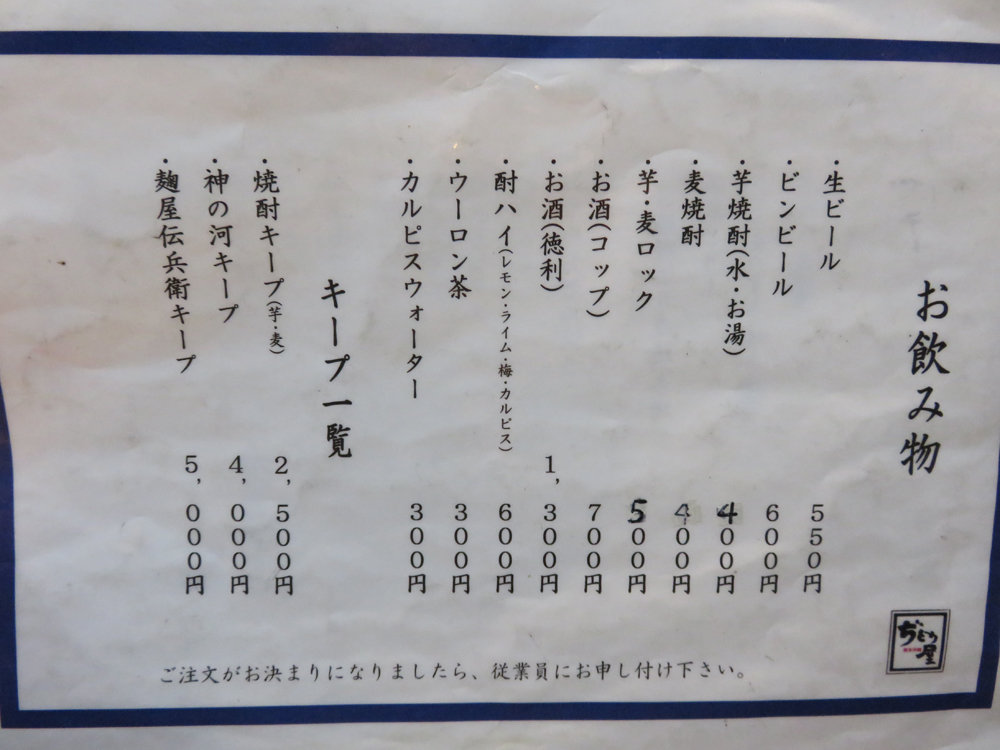 お飲み物
・生ビール 550円
・ビンビール 600円
・芋焼酎(水・お湯) 400円
・麦焼酎 400円
・芋・麦ロック 500円
・お酒(コップ) 700円
・お酒(徳利) 1,300円
・酎ハイ(レモン・ライム・梅・カルピス) 600円
・ウーロン茶 300円
・カルピスウォーター 300円
キープ一覧
・焼酎キープ(芋・麦) 2,500円
・神の河キープ 4,000円
・麹屋伝兵衛キープ 5,000円
ご注文がお決まりになりましたら、従業員にお申し付け下さい。
ぢどり屋